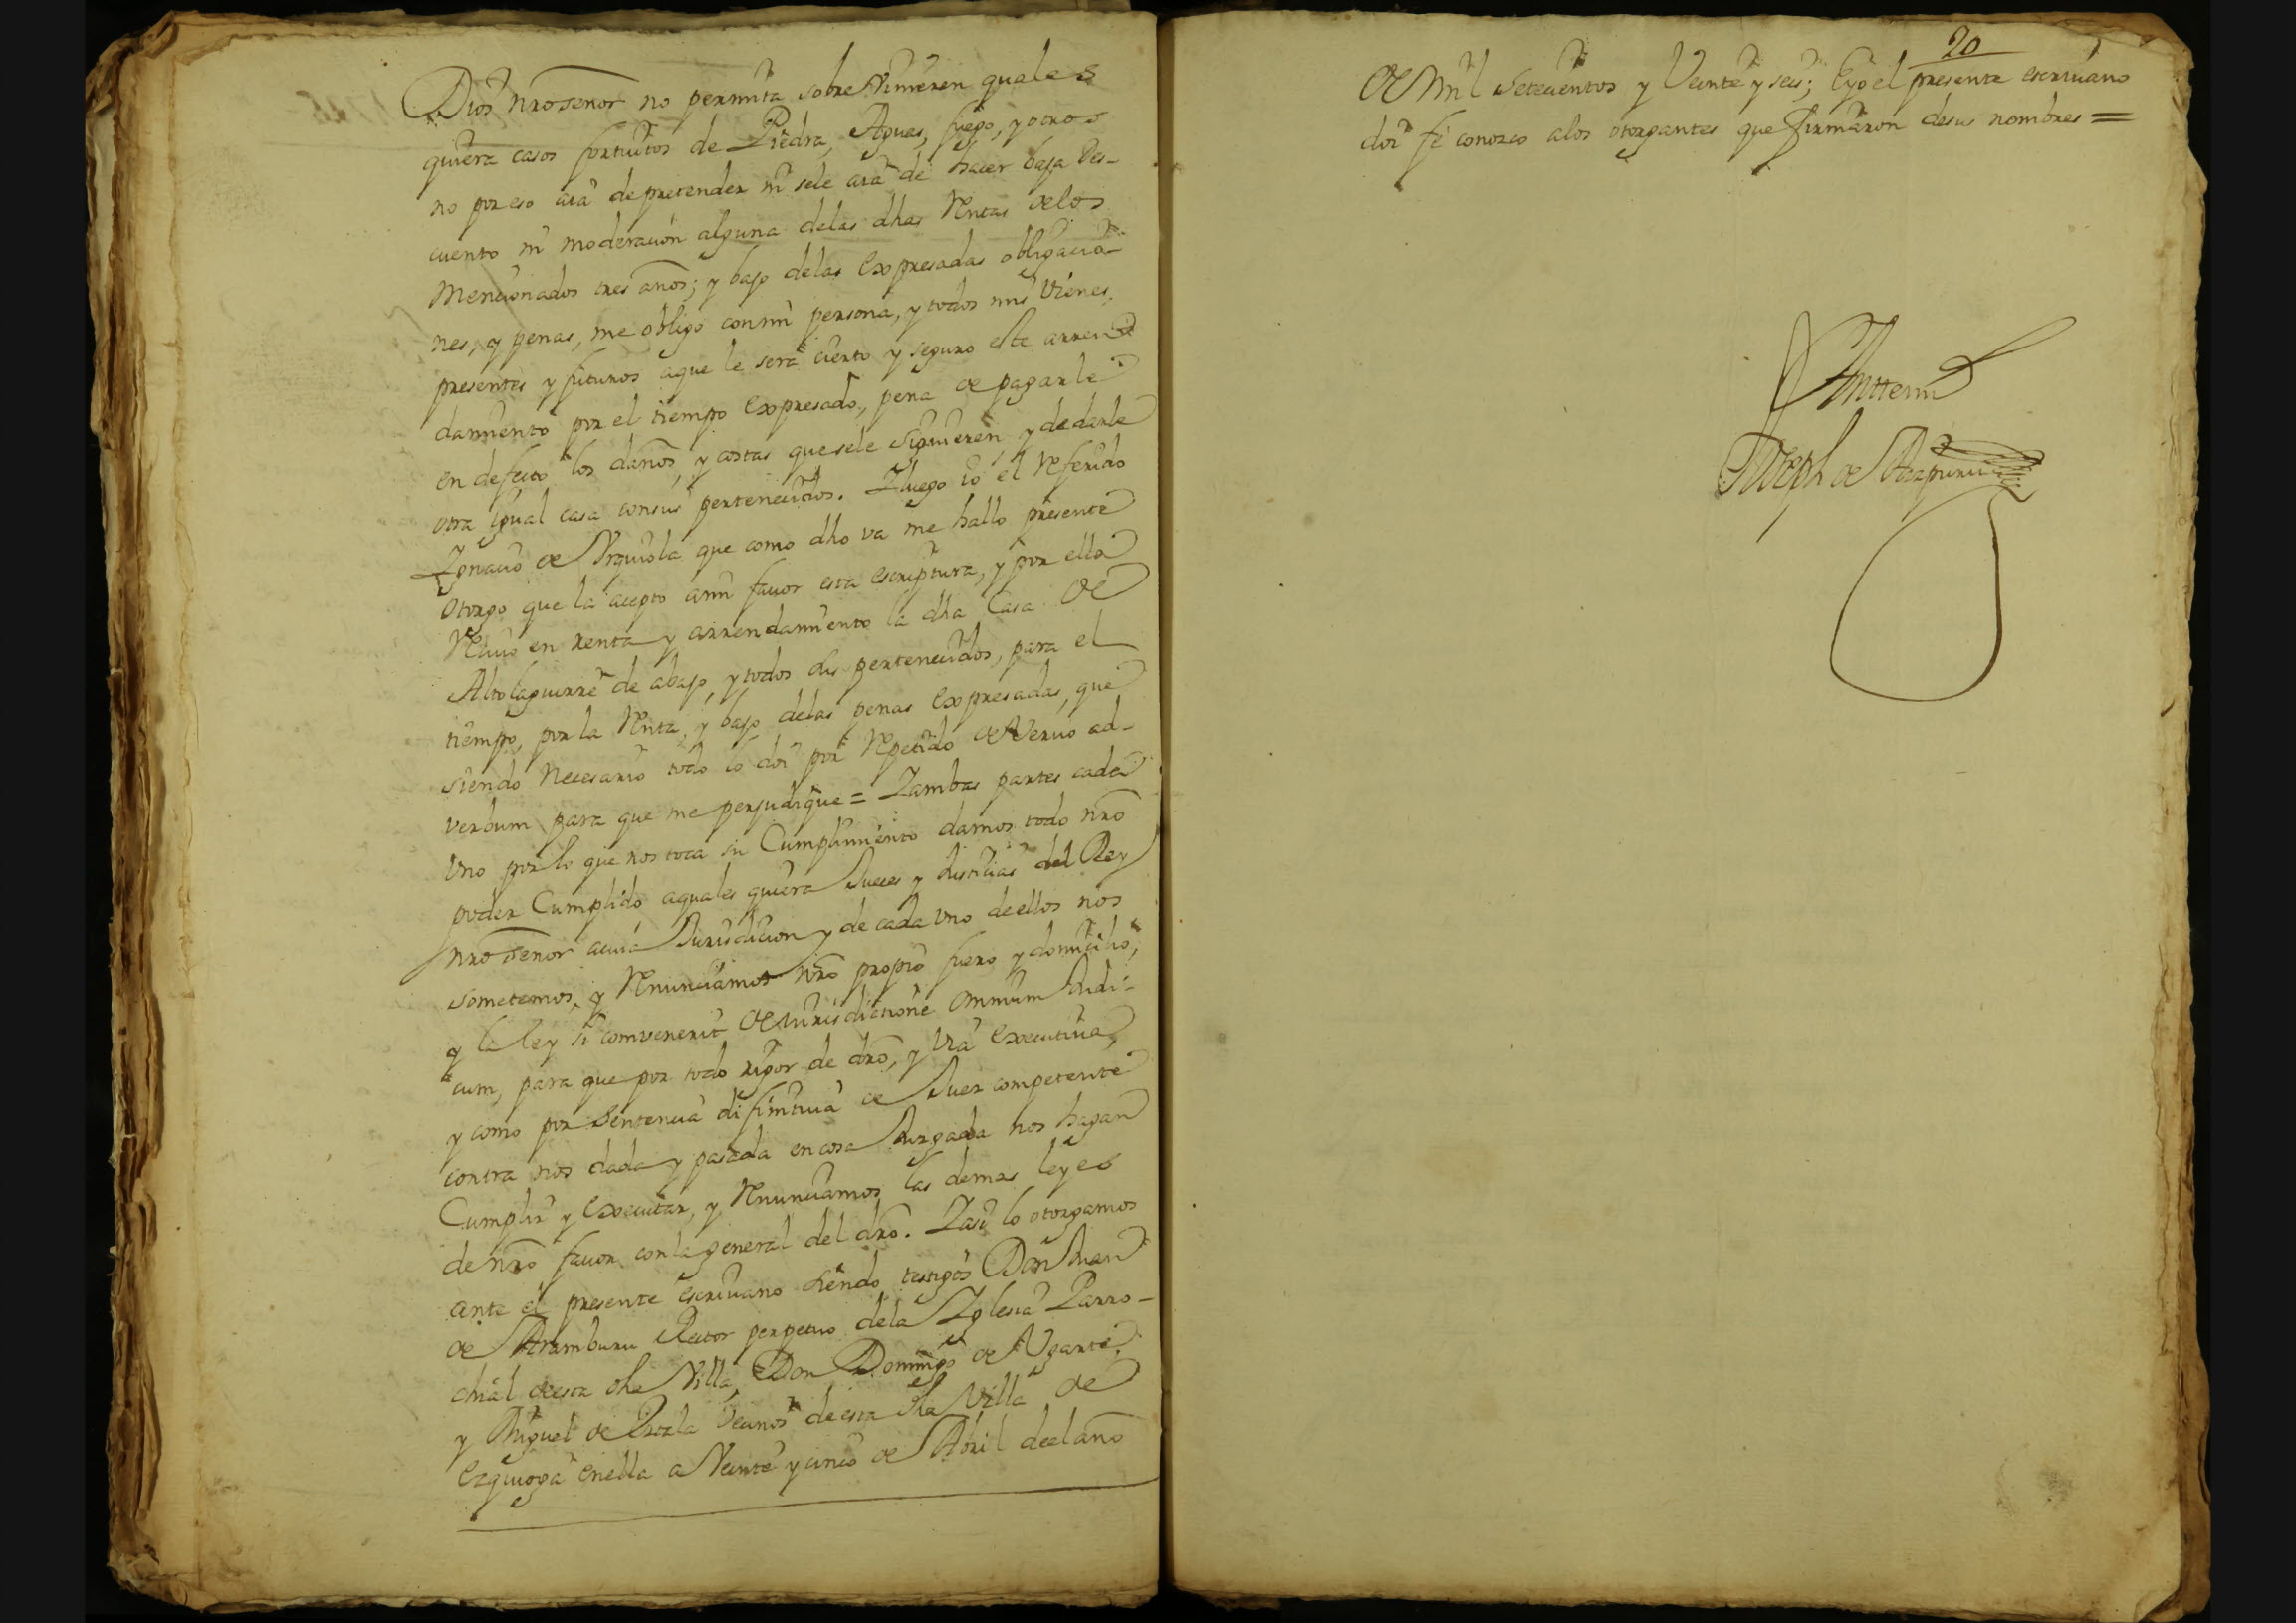 Dios nro señor no permita sobre Vinieren quales
quiera casos fortuitos de Piedra, Aguas, fuego, y otros
no por eso aia de pretender ni sele aia de hacer baja Des-
cuento ni moderacion alguna delas dhas Rentas delos
mencionados tres años; y bajo delas expresadas obligacio-
nes, y penas, me obligo conmi persona, y todos mis Vienes
presentes y futuros aque le sera cierto y seguro este arren
damiento por el tiempo expresado, pena de pagarle
en defecto los daños, y costas quesele siguieren y dedarle
otra igual casa consus pertenecidos. Yluego io el Referido
Ygnacio de Vrquiola que como dho va me hallo presente
otorgo que la acepto ami fauor esta escriptura, y por ella
Reciuo en renta y arrendamiento la dha Casa de
Altolaguirre de abajo, y todos sus pertenecidos, para el
tiempo, por la Renta, y bajo delas penas expresadas, que
siendo Necesario todo lo doi por Repetido de Veruo ad-
verbum para que me perjudique = Yambas partes cada
Vno por lo que nos toca su Cumplimiento damos todo nro
poder Cumplido aquales quiera Jueces y Justicias del Rey
nro señor acuia Jurisdicion y de cada Vno deellos nos
sometemos, y Renunciamos nro propio fuero y domicilio,
y la ley si comvenerit de Jurisdictione omnium Judi-
cum, para que por todo rigor de dro, y Via executiua,
y como por Sentencia difinitiua de Juez competente
contra nos dada y pasada en cosa Juzgada nos hagan
Cumplir y executar, y Renunciamos las demas leyes
de nro fauor con la general del dro. Yasi lo otorgamos
ante el presente escriuano siendo testigos Don Juan
de Aramburu Rector perpetuo dela Yglesia Parro-
chial deesta dha Villa, Don Domingo de Vgarte,
y Miguel de Vecinos deesta dha Villa de
Ezquioga enella a Veinte y cinco de Abril deel año
20
de Mil Setecientos y Veinte y seis; Eyo el presente escriuano
doi fe conozco alos otorgantes que firmaron desus nombres =
Antemi
Joseph de